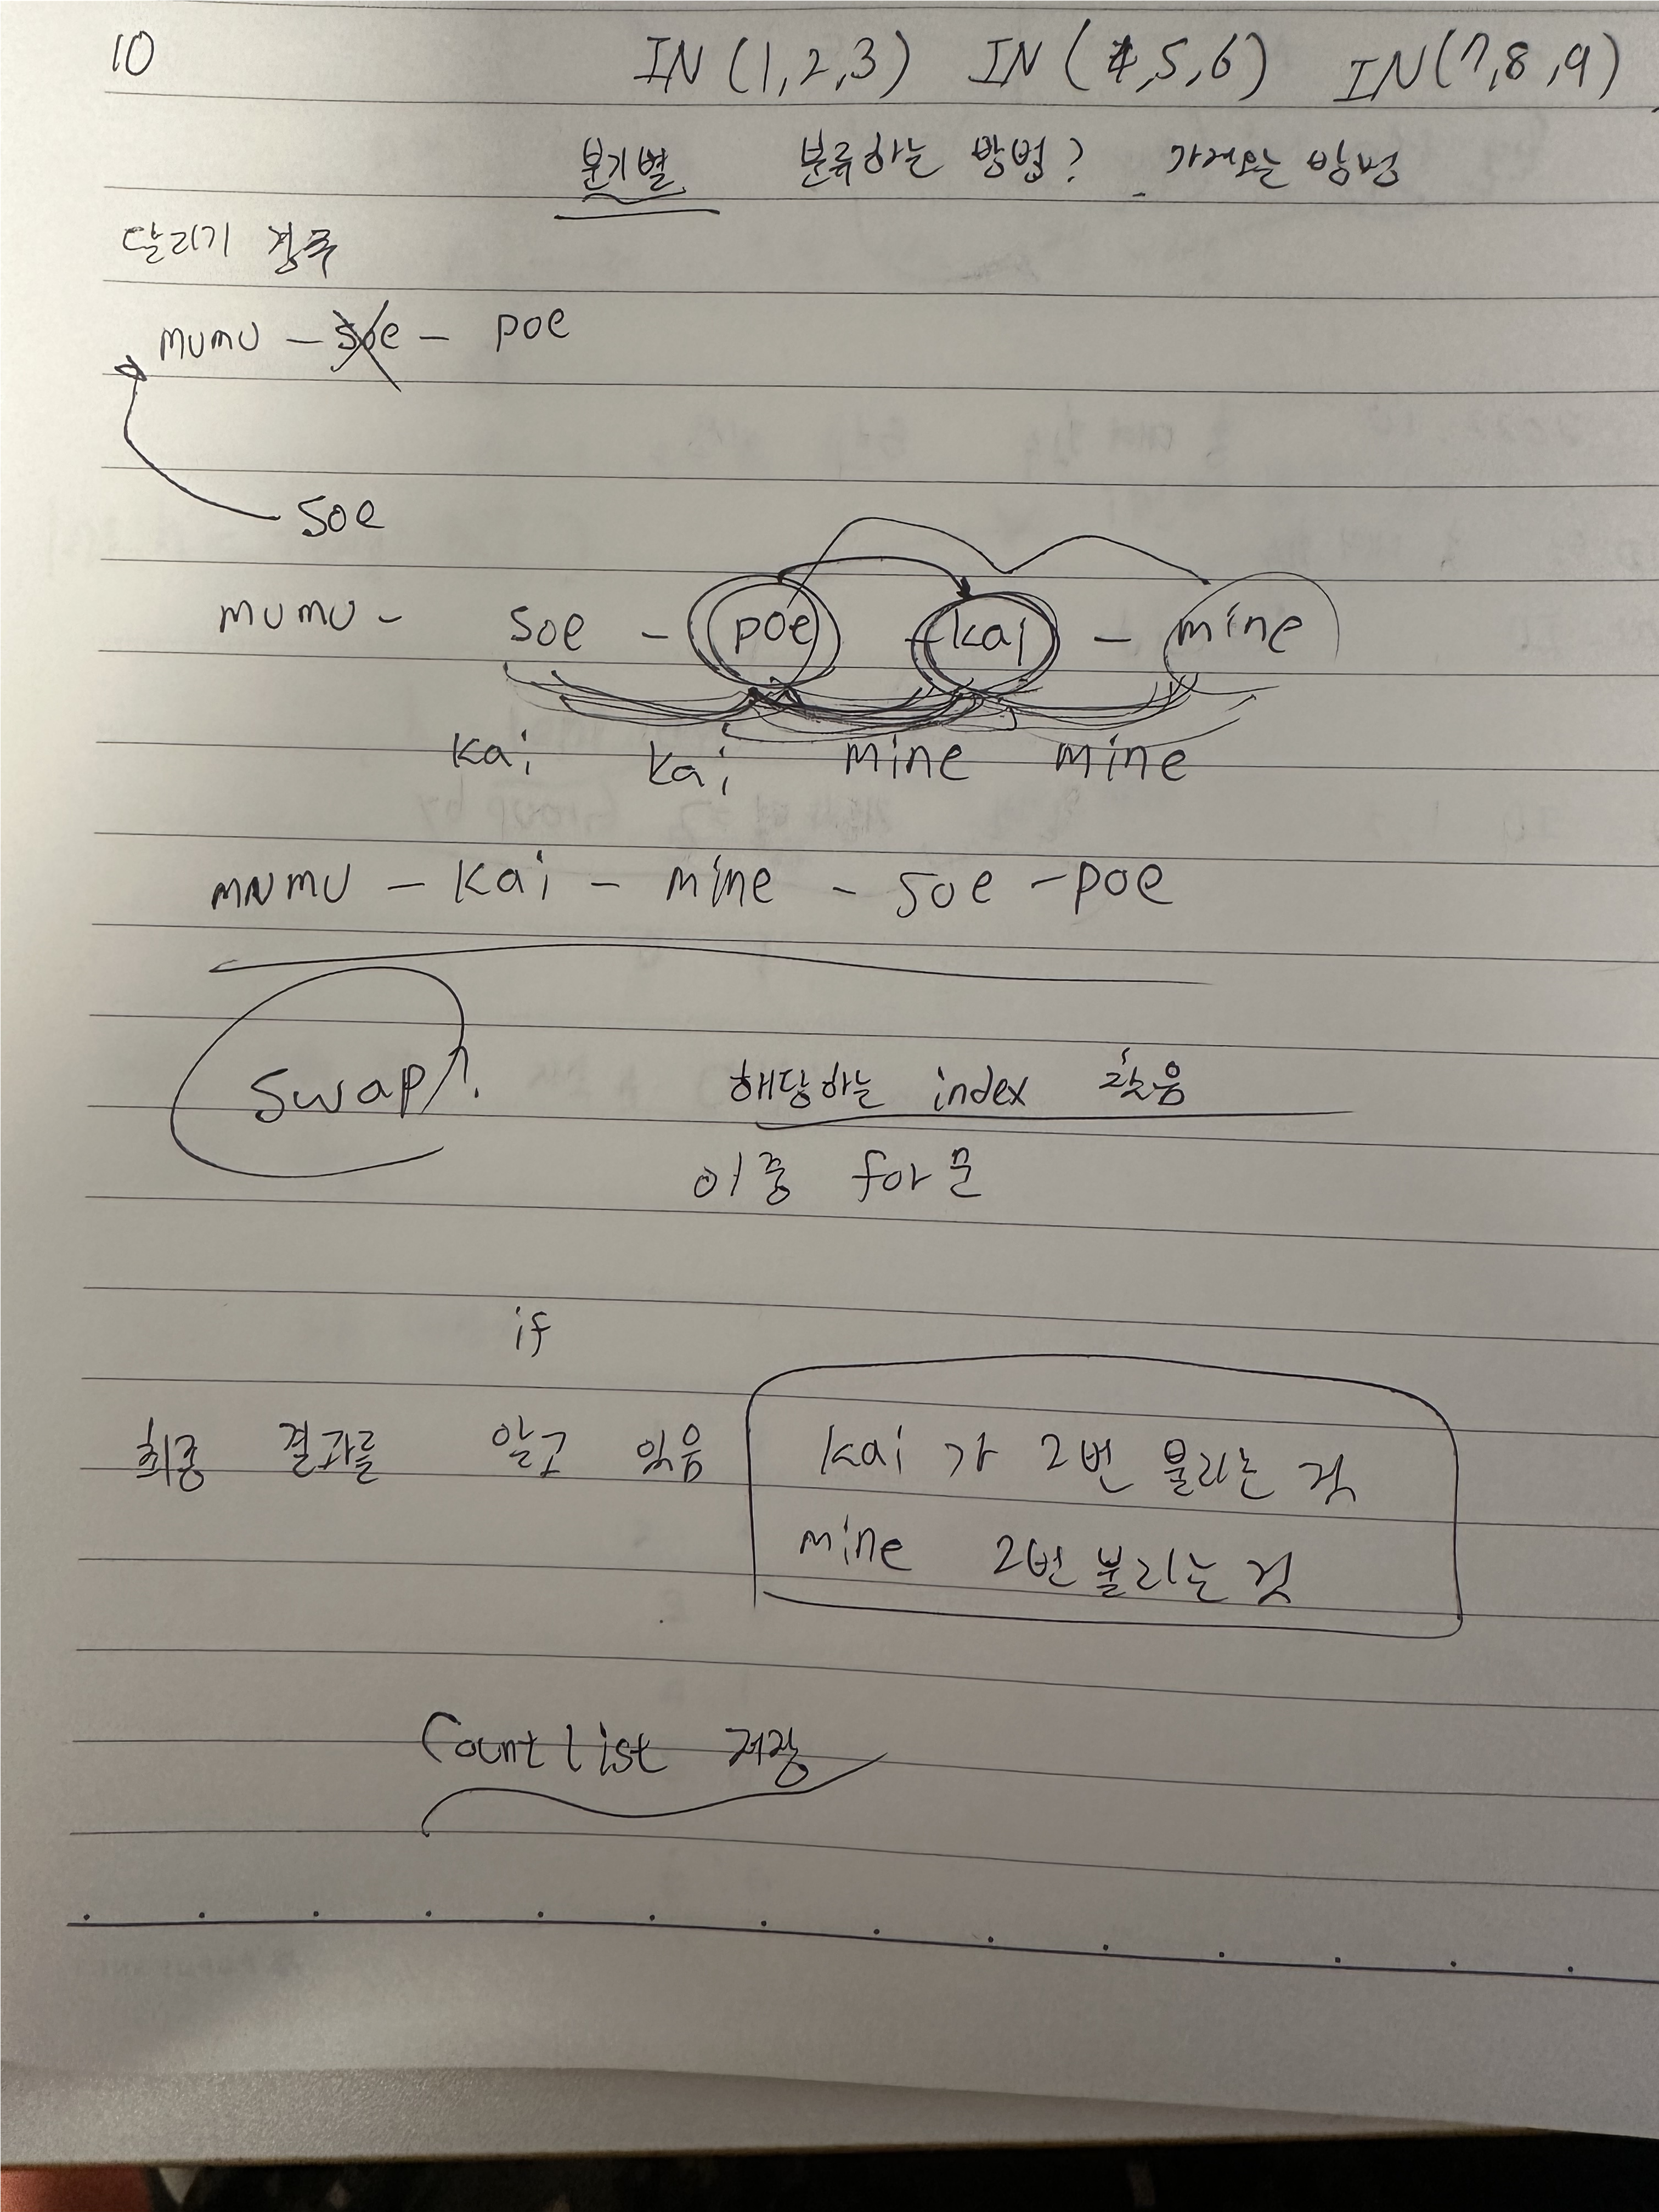 10 IN (1,2,3) IN (4,5,6) IN(7,8,9)
분기별 분류하는 방법? 가져오는 방법
달리기 경주
mumu - soe - poe
soe
mumu - soe - poe - kai - mine
kai kai mine mine
mumu - kai - mine - soe - poe
swap?. 해당하는 index 찾음
이중 for문
if
최종 결과를 알고 있음 kai 가 2번 불리는 것
mine 2번 불리는 것
Count list 저장